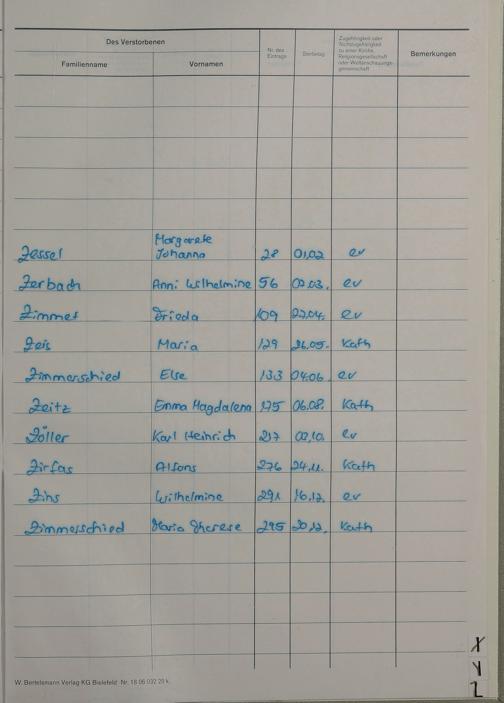 Des Verstorbenen
Familienname Vornamen Nr. des Eintrags Sterbetag Zugehörigkeit oder Nichtzugehörigkeit zu einer Kirche, Religionsgesellschaft oder Weltanschauungsgemeinschaft Bemerkungen
Margarete
Zessel Johanna 28 01.02 ev
Zerbach Anni Wilhelmine 56 02.03. ev
Zimmet Frieda 109 27.04. ev
Zeis Maria 129 26.05. Kath
Zimmerschied Else 133 04.06. ev
Zeitz Emma Magdalena 175 06.08. Kath
Zöller Karl Heinrich 217 02.10. ev
Zirfas Alfons 276 24.11. Kath
Zins Wilhelmine 291 16.12. ev
Zimmerschied Maria Therese 295 20.12. Kath
X
Y
Z
W. Bertelsmann Verlag KG Bielefeld Nr. 18 06 032 29 k.